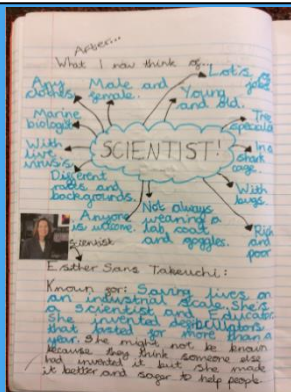 After...
What I now think of...
Lots of jobs
Any clothes
Male and female.
Young and old.
Marine biologist
The specialist
SCIENTIST!
With live viruses
In a shark cage.
Different races and backgrounds.
With bugs.
Anyone is welcome.
Not always wearing a lab coat and goggles.
Rich and poor
Scientist
Esther Sans Takeuchi:
Known for: Saving lives on
an industrial scale. She's
a scientist and Educator
She invented defibrillators
that lasted for more than a
year. She might not be known
because they think someone else
had invented it but she made
it better and safer to help people